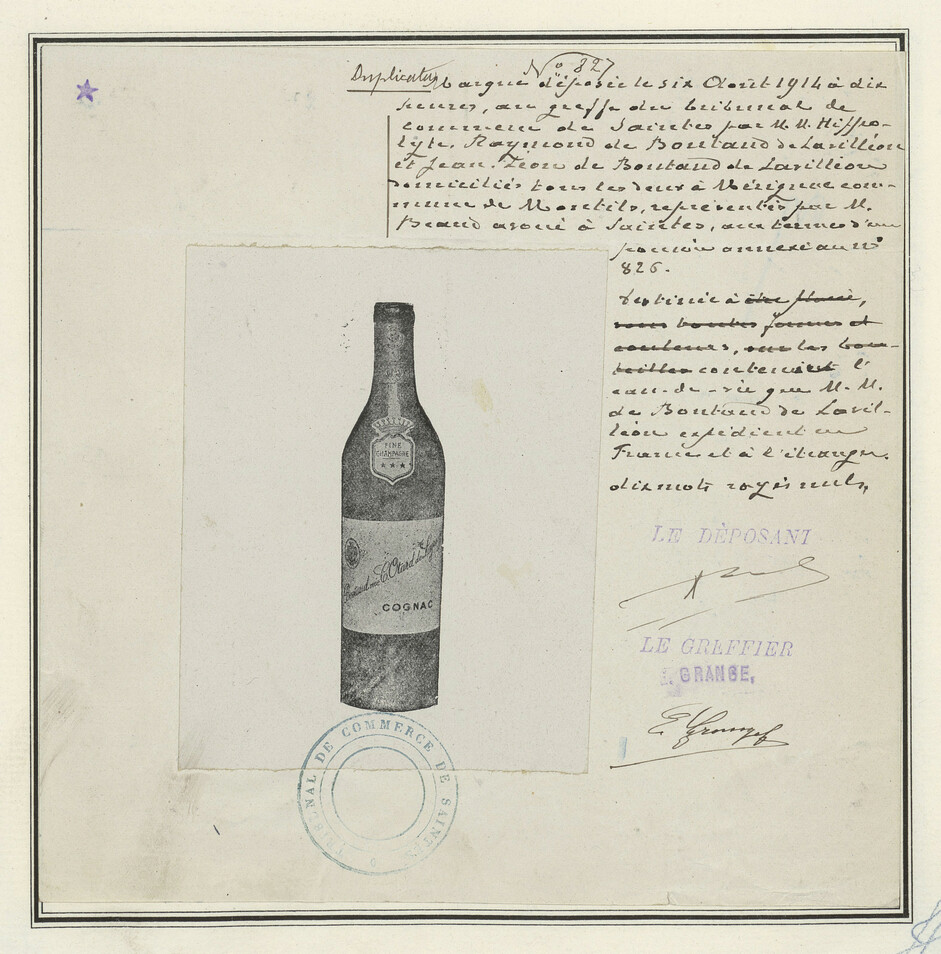 Duplicata
N° 827
Marque déposée le six Août 1914 à dix
heures, au greffe du tribunal de
commerce de Saintes par M.M. Hippo-
lyte. Raymond de Boutaud de Lavilléon
et Jean. Léon de Boutaud de Lavilléon
domiciliés tous les deux à Mérignac com-
mune de Montils, représentés par M.
Beaud avoué à Saintes, aux termes d'un
pouvoir annexé au n°
826.
Destinée à être placée,
sous toutes formes et
couleurs, sur les bou-
teilles contenant l'
eau-de-vie que M.M.
de Boutaud de Lavil-
léon expédient en
France et à l'étranger.
dix mots rayés nuls,
FINE
CHAMPAGNE
COGNAC
LE DÉPOSANT
LE GREFFIER
E. GRANGE,
E. Grange
TRIBUNAL DE COMMERCE DE SAINTES